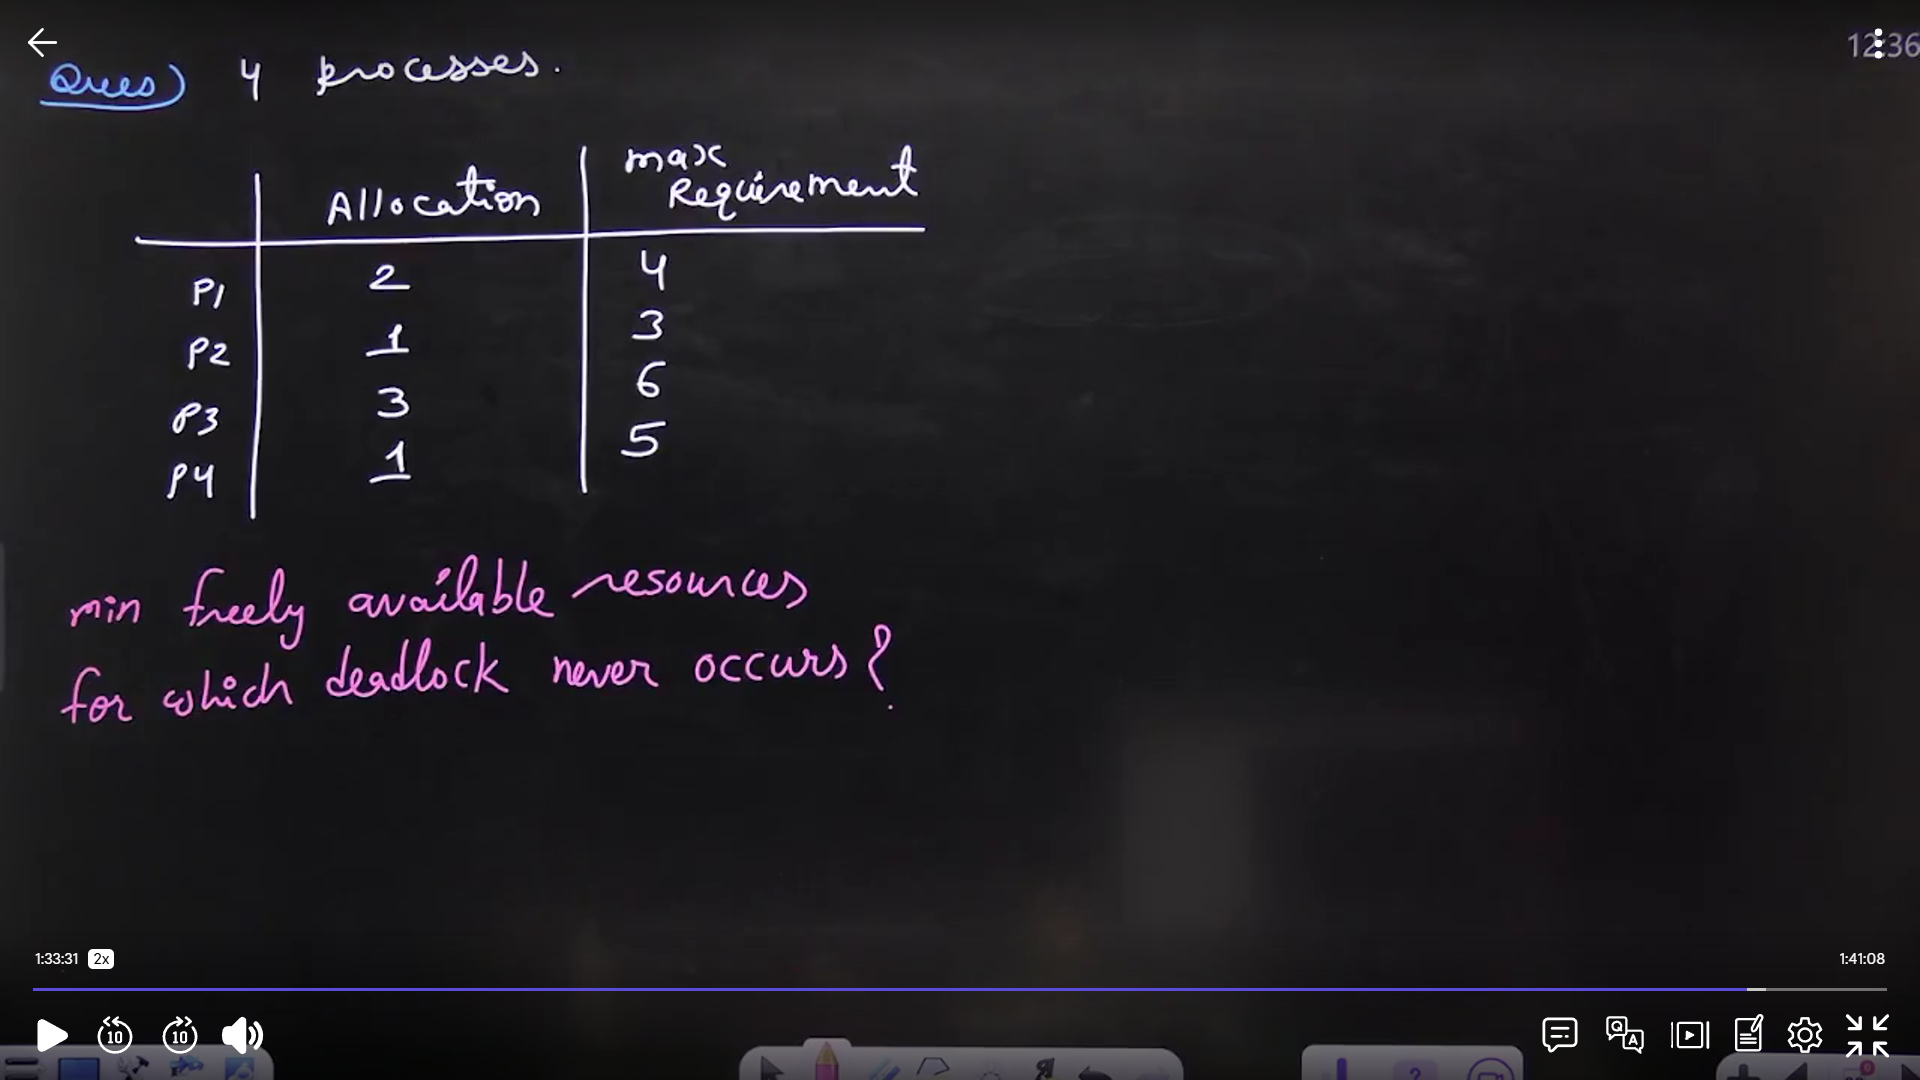 12:36
Ques) 4 processes.
Allocation max Requirement
P1 2 4
P2 1 3
P3 3 6
P4 1 5
min freely available resources
for which deadlock never occurs?
1:33:31 2x 1:41:08
10 10